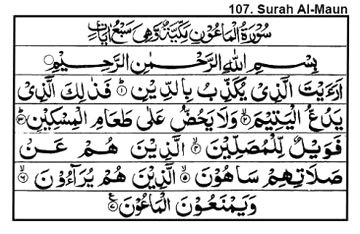 107. Surah Al-Maun
سُوْرَةُ الْمَاعُوْنِ مَكِّيَّةٌ وَّهِیَ سَبْعُ اٰيَاتٍ
بِسْمِ اللّٰهِ الرَّحْمٰنِ الرَّحِيْمِ
اَرَءَيْتَ الَّذِیْ يُكَذِّبُ بِالدِّيْنِ ۱ فَذٰلِكَ الَّذِیْ
يَدُعُّ الْيَتِيْمَ ۲ وَلَا يَحُضُّ عَلٰی طَعَامِ الْمِسْكِيْنِ ۳
فَوَيْلٌ لِّلْمُصَلِّيْنَ ۴ الَّذِيْنَ هُمْ عَنْ
صَلَاتِهِمْ سَاهُوْنَ ۵ الَّذِيْنَ هُمْ يُرَآءُوْنَ ۶
وَيَمْنَعُوْنَ الْمَاعُوْنَ ۷